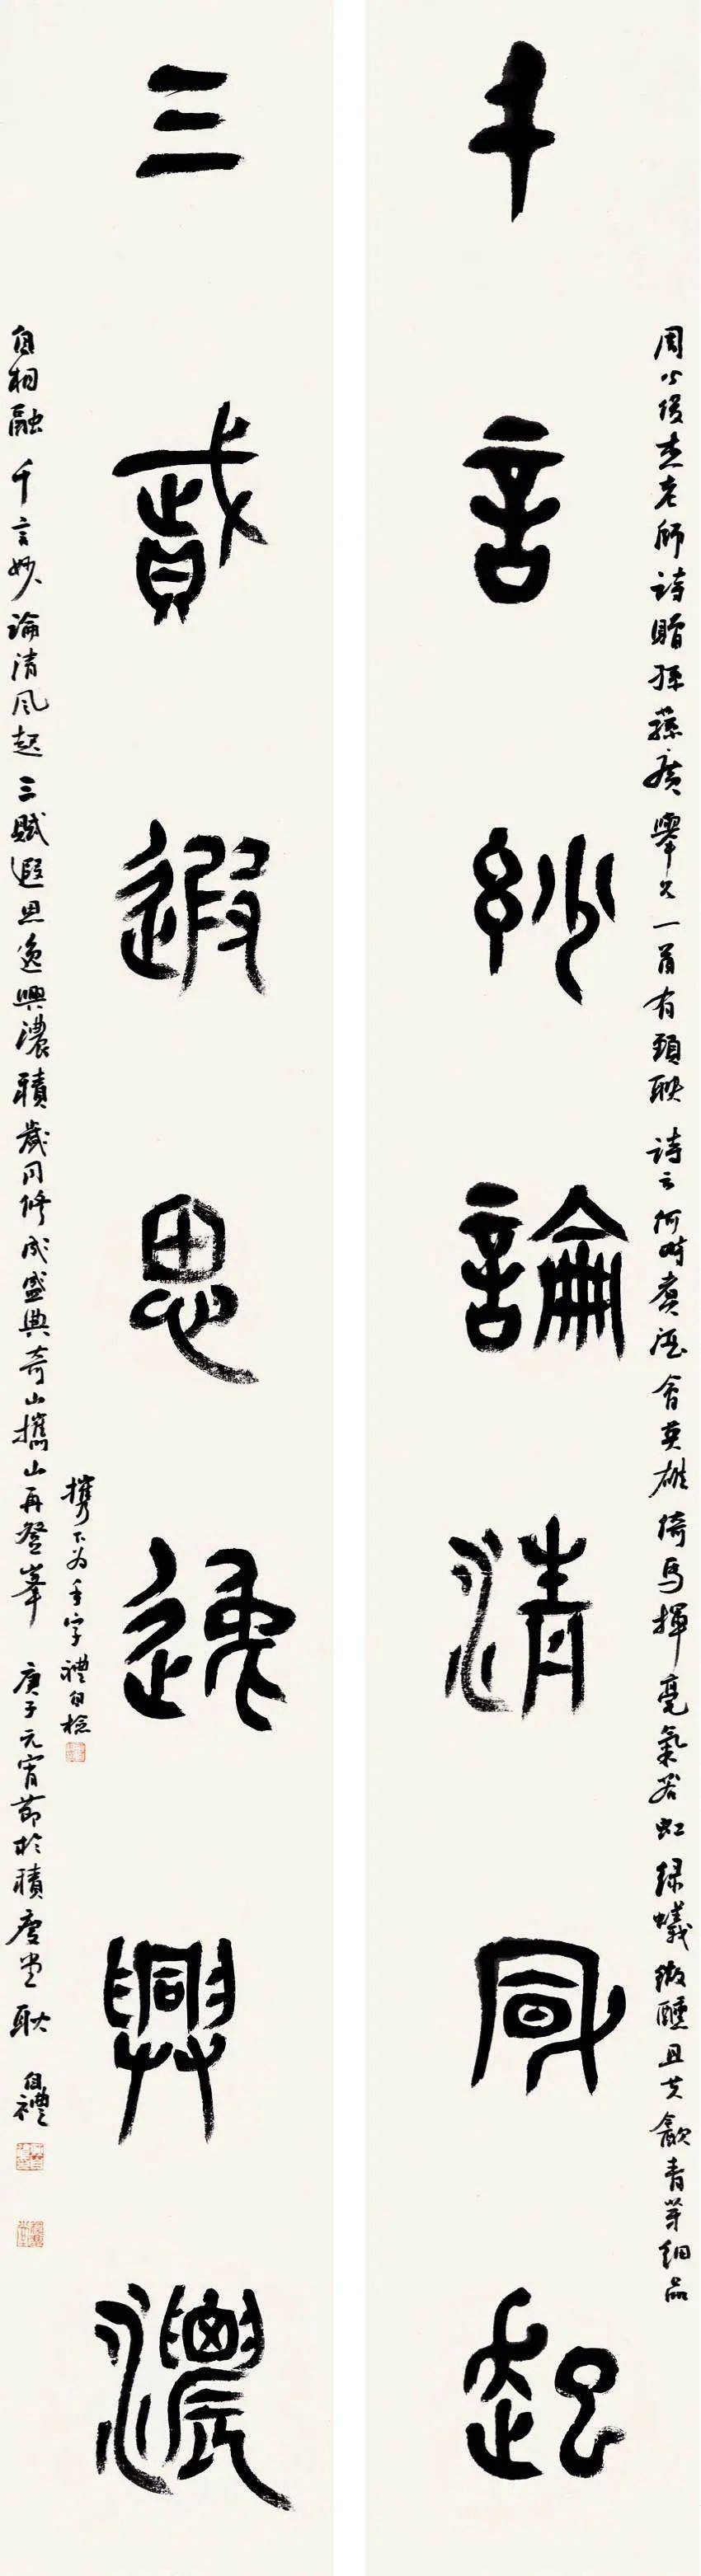 千言妙論清風起
三賦遐思逸興濃
周公俊杰老師詩贈孫蘇廣舉兄一首有頸聯詩云何時煮酒會英雄倚馬揮毫氣若虹綠蟻微醺且共歙青芽細品
自相融千言妙論清風起三賦遐思逸興濃積歲同修成盛典奇山攜山再登峯庚子元宵節於積慶堂耿自禮
攜下為手字禮自檢